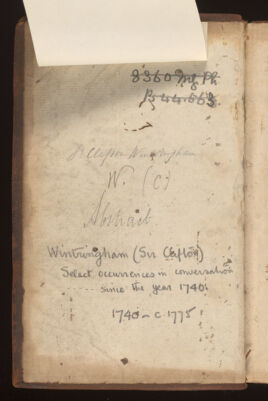 8360 Mg Ph
B 44.663
Sr Clifton Wintringham
W. (C)
Abstract
Wintringham (Sir Clifton)
Select occurrences in conversation
since the year 1740.
1740 - c. 1775